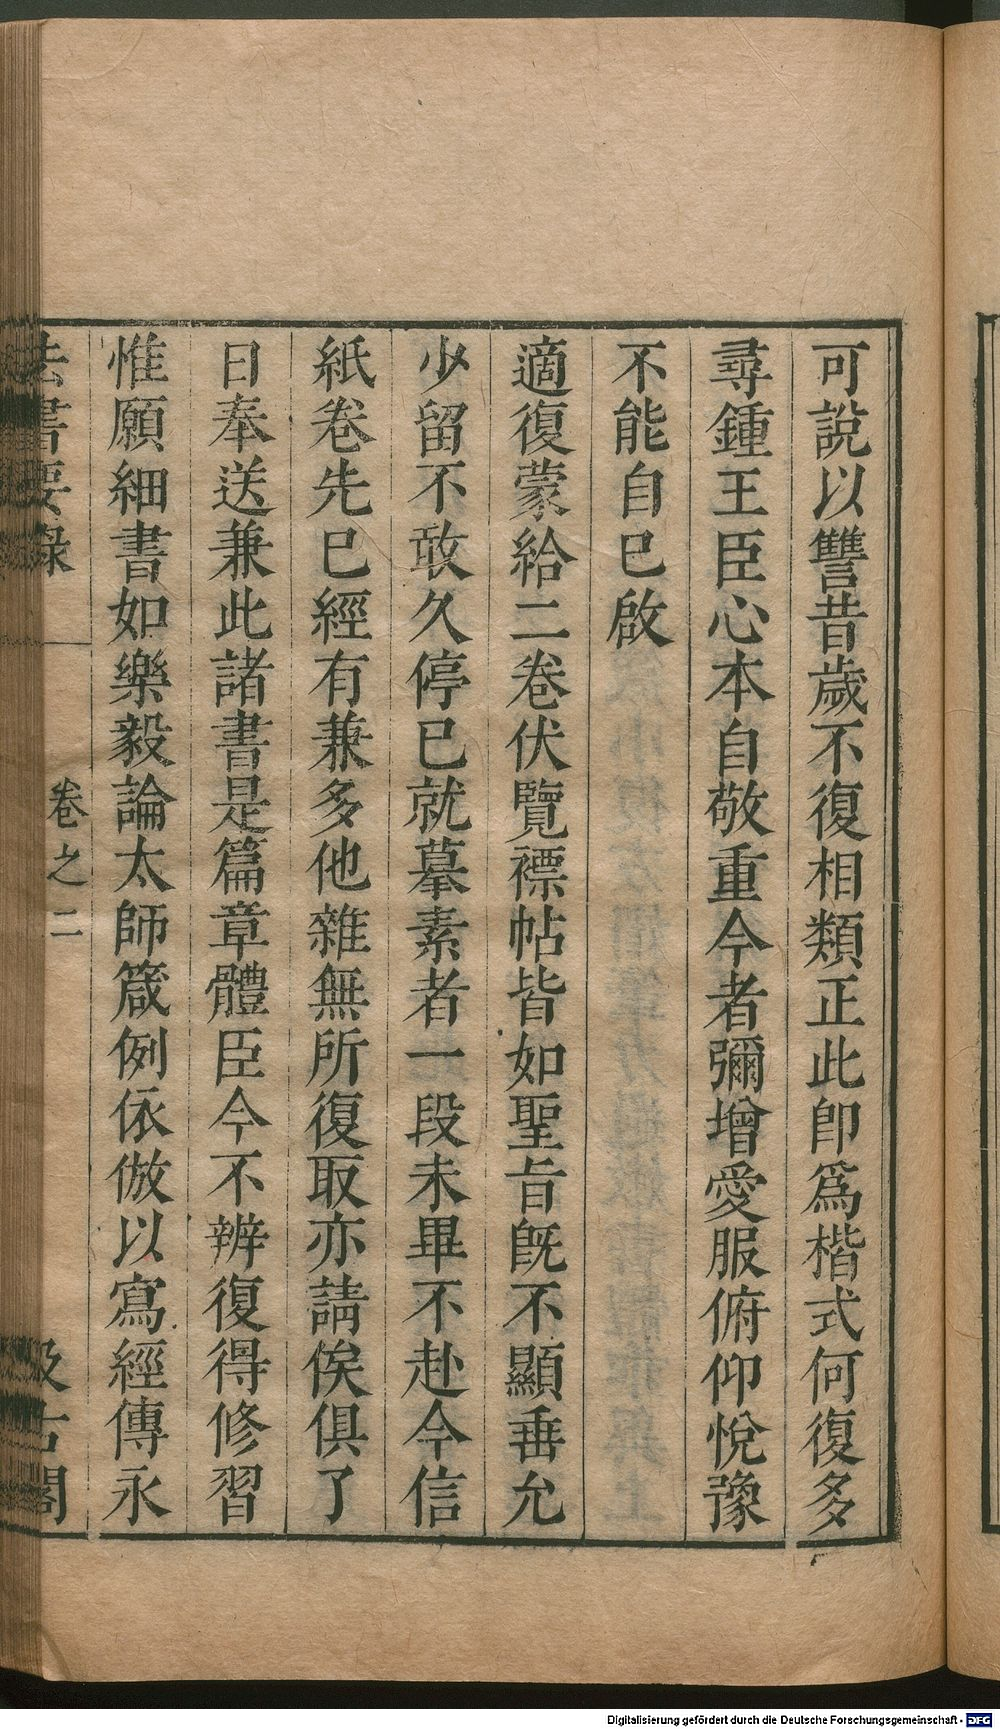 可說以讐昔歲不復相類正此卽爲楷式何復多
尋鍾王臣心本自敬重今者彌增愛服俯仰悅豫
不能自已啟
適復蒙給二卷伏覽褾帖皆如聖旨旣不顯垂允
少留不敢久停已就摹素者一段未畢不赴今信
紙卷先已經有兼多他雜無所復取亦請俟俱了
日奉送兼此諸書是篇章體臣今不辨復得修習
惟願細書如樂毅論太師箴例依倣以寫經傳永
法書要錄 卷之二 汲古閣
Digitalisierung gefördert durch die Deutsche Forschungsgemeinschaft - DFG